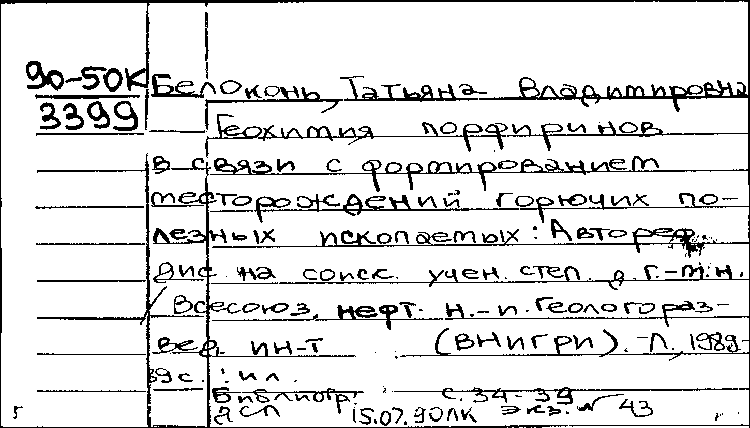 90-50К
3399
Белоконь, Татьяна Владимировна
Геохимия порфиринов
в связи с формированием
месторождений горючих по-
лезных ископаемых: Автореф.
дис. на соиск. учен. степ. д.г.-м.н.
/ Всесоюз. нефт. н.-и. геологораз-
вед. ин-т (ВНИГРИ). - Л., 1989.-
39 с. : ил.
Библиогр. с. 34-39
ДСП 15.07.90ЛК экз. № 43
5